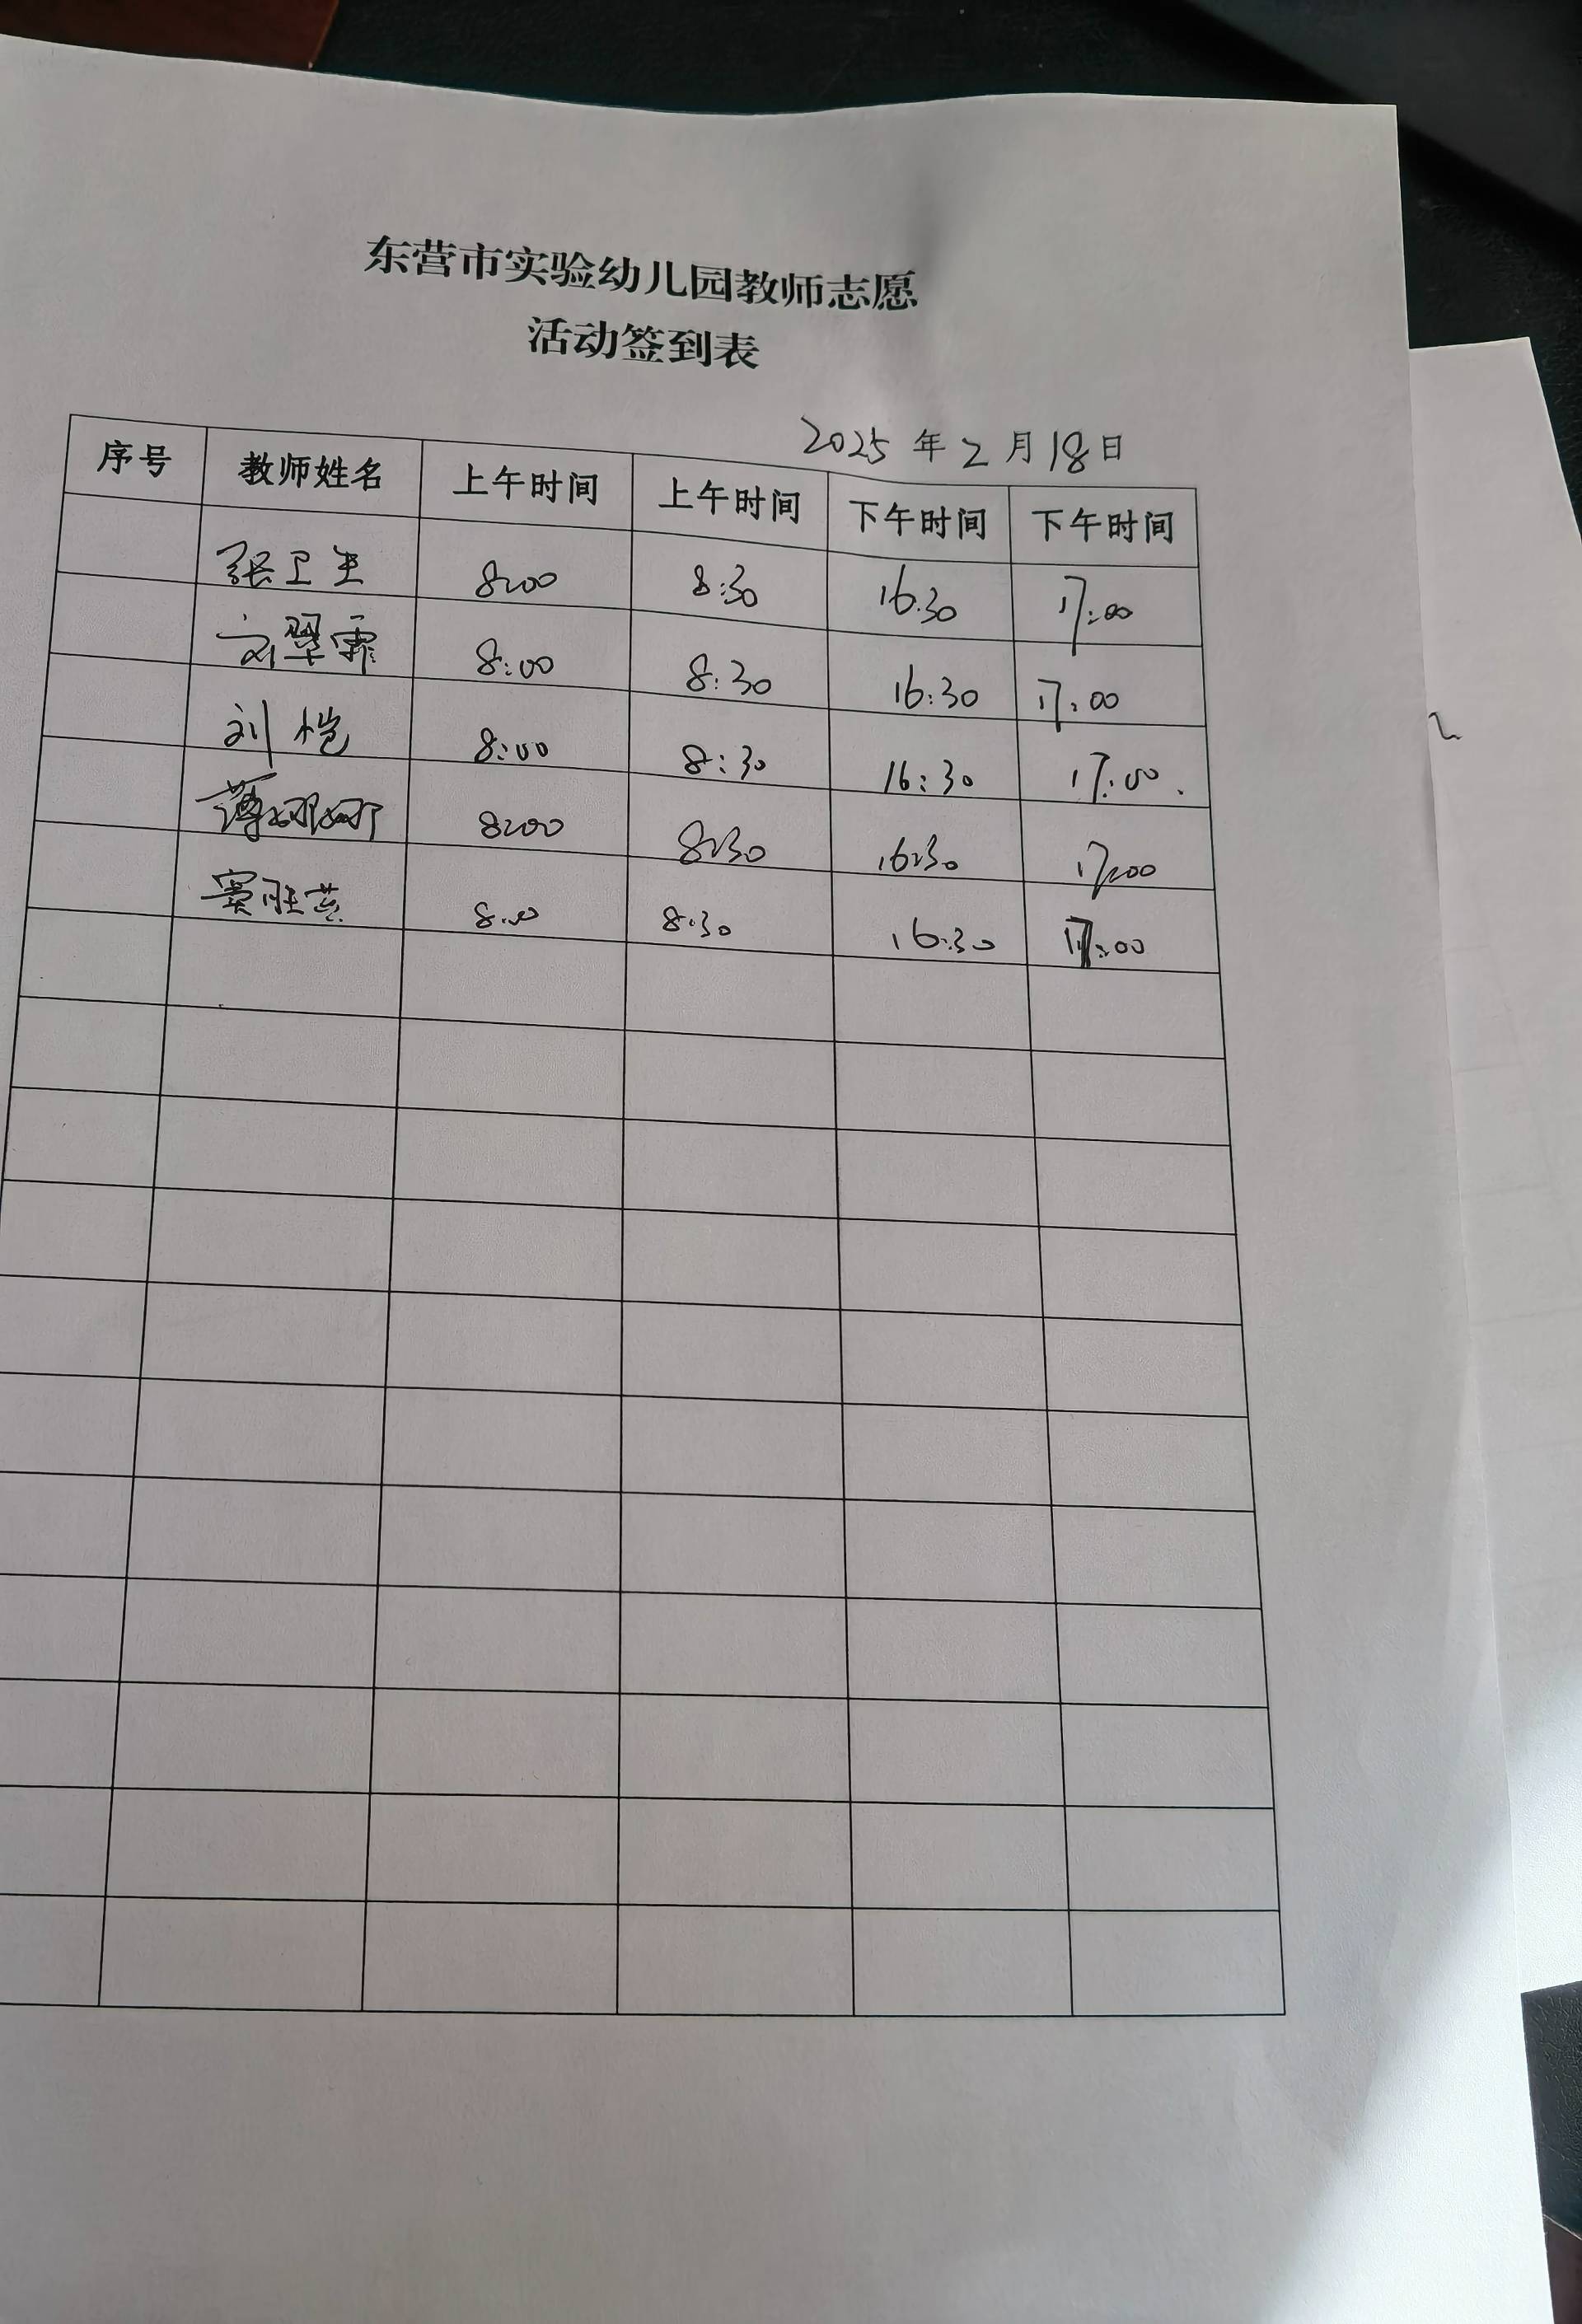 东营市实验幼儿园教师志愿
活动签到表
2025 年 2 月 18 日
序号 教师姓名 上午时间 上午时间 下午时间 下午时间
张卫生 8:00 8:30 16:30 17:00
刘翠霏 8:00 8:30 16:30 17:00
刘恺 8:00 8:30 16:30 17:00
薄娜娜 8:00 8:30 16:30 17:00
8:00 8:30 16:30 17:00